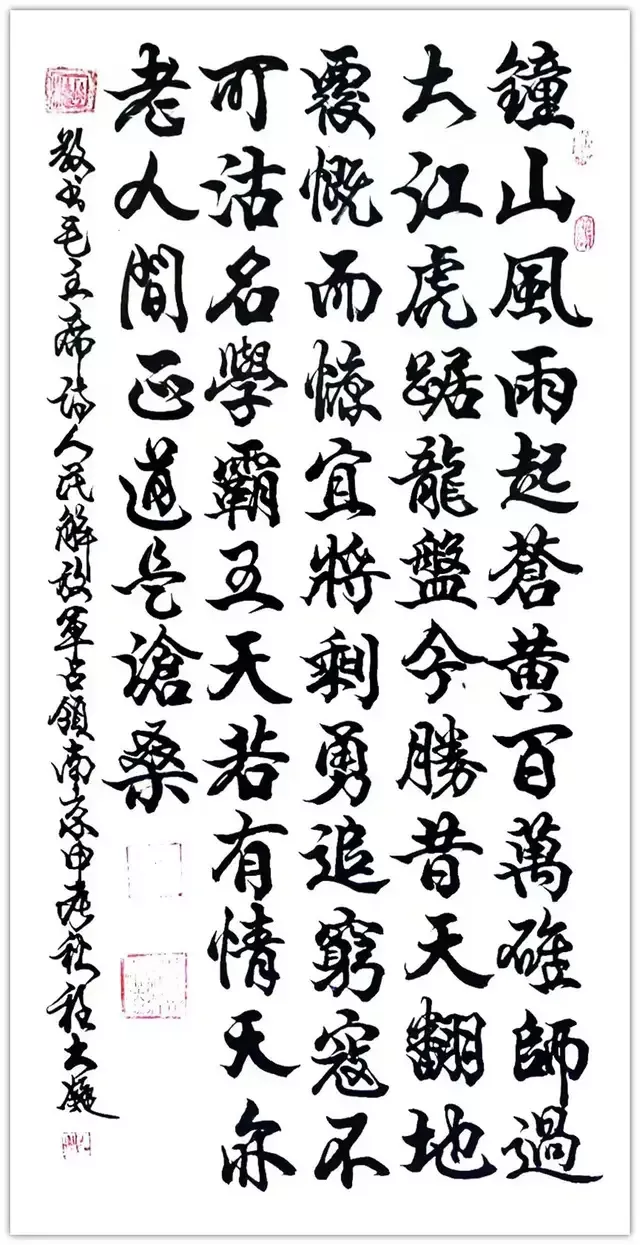 鐘山風雨起蒼黃百萬雄師過
大江虎踞龍盤今勝昔天翻地
覆慨而慷宜將剩勇追窮寇不
可沽名學霸王天若有情天亦
老人間正道是滄桑
敬书毛主席詩人民解放軍占領南京秋程大